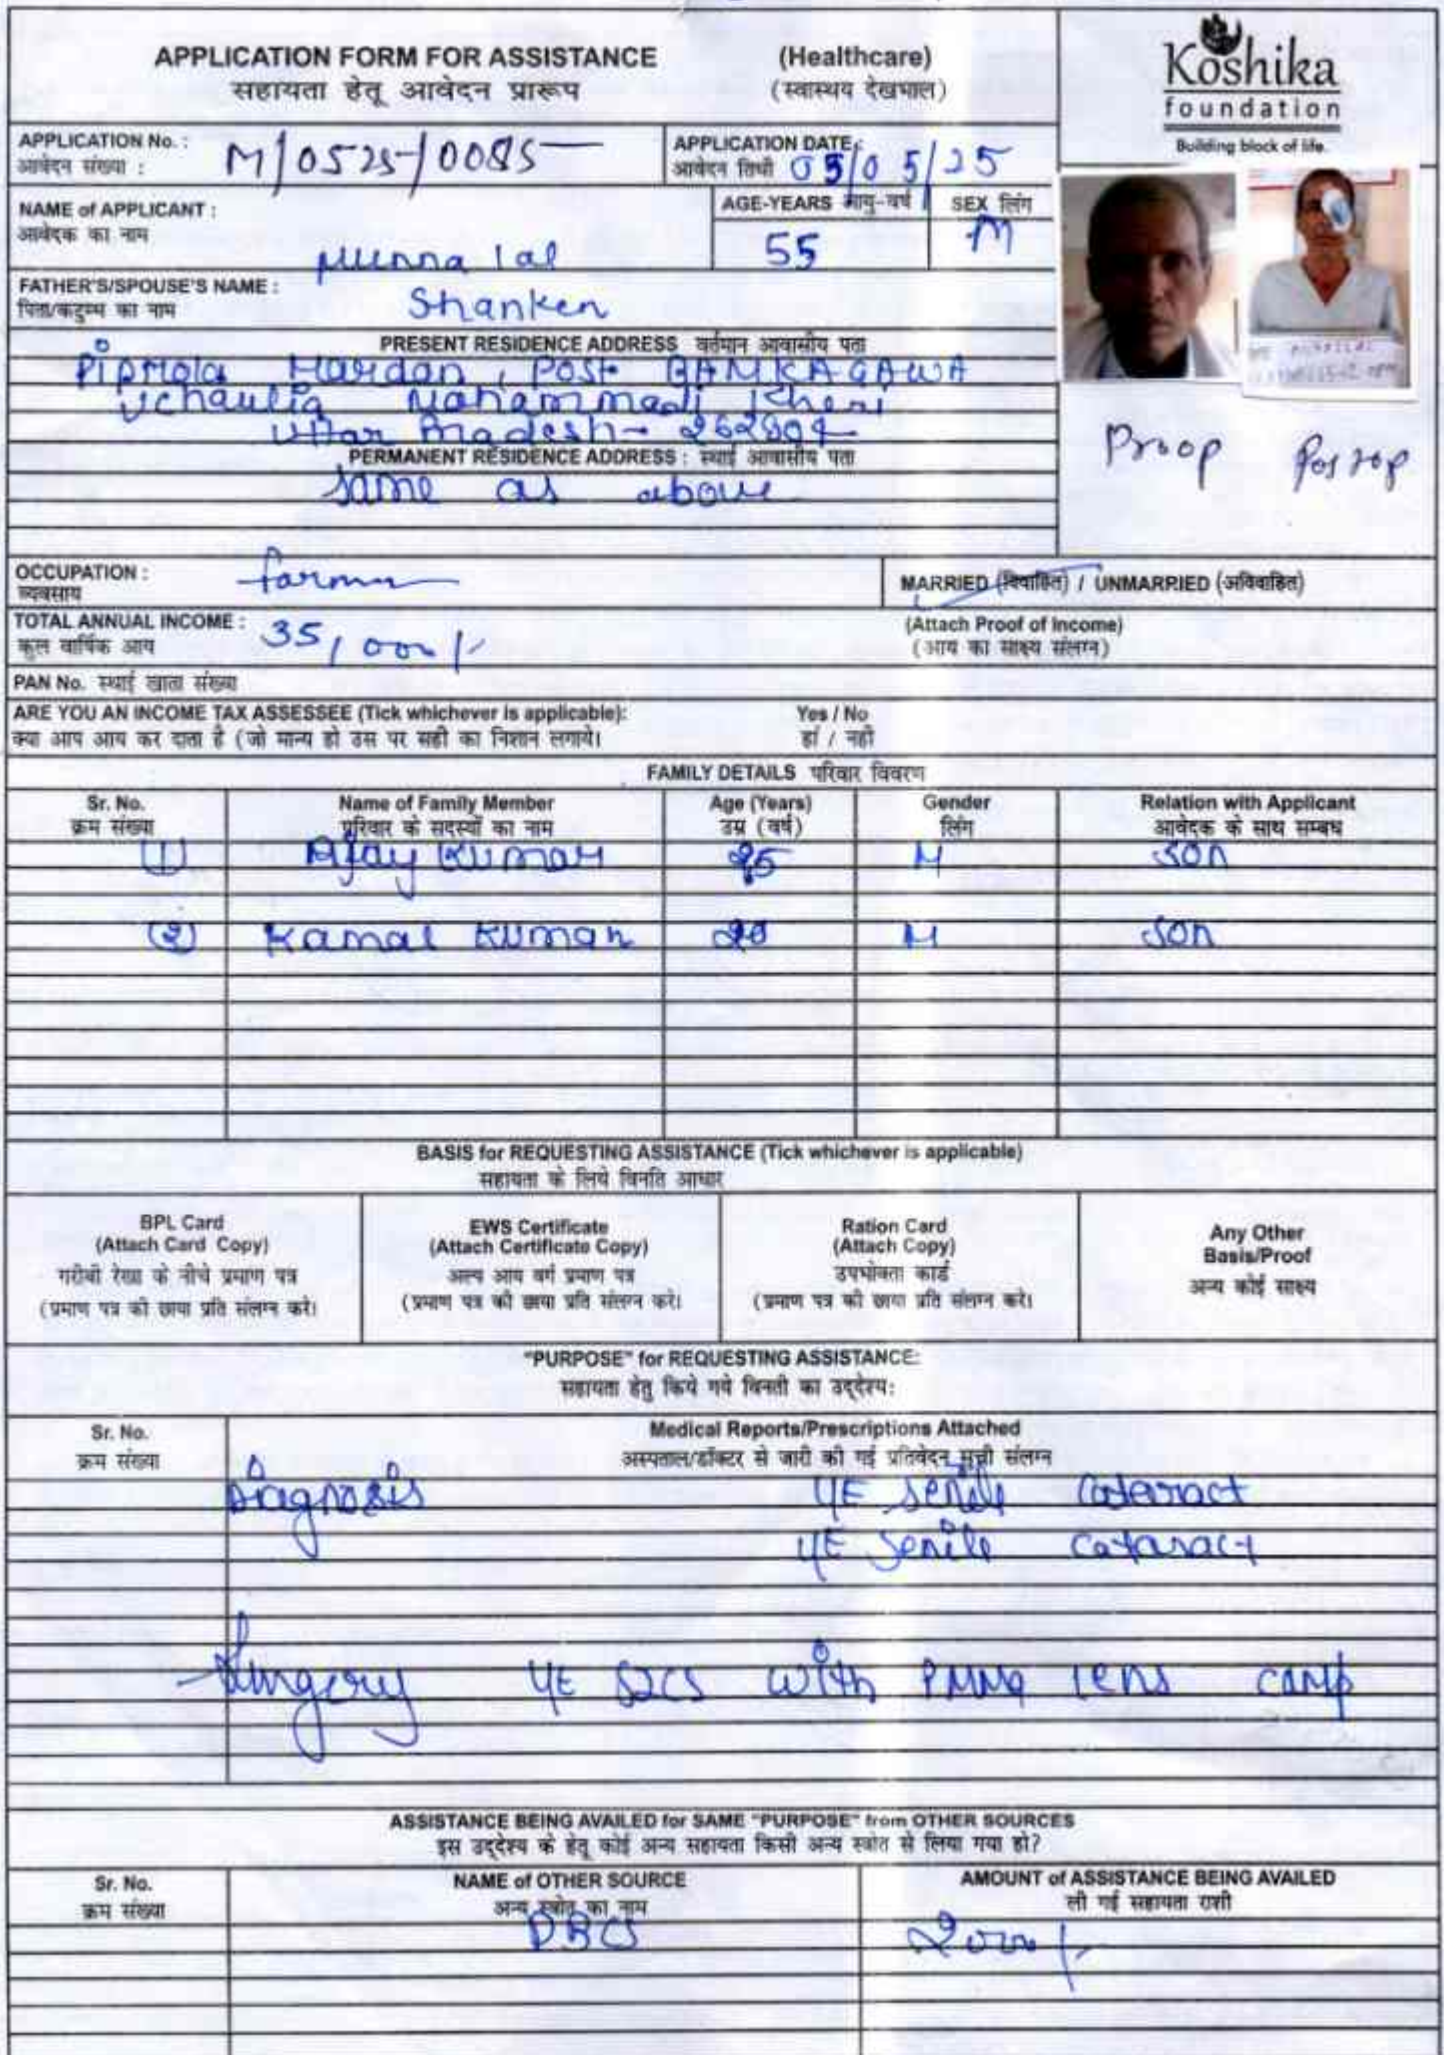 APPLICATION FORM FOR ASSISTANCE (Healthcare)
सहायता हेतू आवेदन प्रारूप (स्वास्थय देखभाल)
Koshika
foundation
Building block of life.
APPLICATION No. : M/0525/0085
आवेदन संख्या :
APPLICATION DATE : 05/05/25
आवेदन तिथी
NAME of APPLICANT : Munna lal
आवेदक का नाम
AGE-YEARS आयु-वर्ष 55
SEX लिंग M
FATHER'S/SPOUSE'S NAME : Shanker
पिता/कटुम्ब का नाम
PRESENT RESIDENCE ADDRESS वर्तमान आवासीय पता
Piprola Mardan, Post- BAMKAGAWA
Uchaulia Mohammadi Kheri
Uttar Pradesh- 262804
PERMANENT RESIDENCE ADDRESS : स्थाई आवासीय पता
same as above
Preop Postop
OCCUPATION : farmer
व्यवसाय
MARRIED (विवाहित) / UNMARRIED (अविवाहित)
TOTAL ANNUAL INCOME : 35,000/-
कुल वार्षिक आय
(Attach Proof of Income)
(आय का साक्ष्य संलग्न)
PAN No. स्थाई खाता संख्या
ARE YOU AN INCOME TAX ASSESSEE (Tick whichever is applicable): Yes / No
क्या आप आय कर दाता है (जो मान्य हो उस पर सही का निशान लगाये। हां / नहीं
FAMILY DETAILS परिवार विवरण
Sr. No. Name of Family Member Age (Years) Gender Relation with Applicant
क्रम संख्या परिवार के सदस्यों का नाम उम्र (वर्ष) लिंग आवेदक के साथ सम्बध
(1) Ajay Kumar 25 M son
(2) Kamal Kumar 20 M son
BASIS for REQUESTING ASSISTANCE (Tick whichever is applicable)
सहायता के लिये विनति आधार
BPL Card
(Attach Card Copy)
गरीबी रेखा के नीचे प्रमाण पत्र
(प्रमाण पत्र की छाया प्रति संलग्न करे।
EWS Certificate
(Attach Certificate Copy)
अल्प आय वर्ग प्रमाण पत्र
(प्रमाण पत्र की छाया प्रति संलग्न करे।
Ration Card
(Attach Copy)
उपभोक्ता कार्ड
(प्रमाण पत्र की छाया प्रति संलग्न करे।
Any Other
Basis/Proof
अन्य कोई साक्ष्य
"PURPOSE" for REQUESTING ASSISTANCE:
सहायता हेतु किये गये विनती का उद्देश्य:
Sr. No. Medical Reports/Prescriptions Attached
क्रम संख्या अस्पताल/डॉक्टर से जारी की गई प्रतिवेदन सूची संलग्न
Diagnosis senile cataract
senile cataract
Surgery SICS with PMMA lens camp
ASSISTANCE BEING AVAILED for SAME "PURPOSE" from OTHER SOURCES
इस उद्देश्य के हेतू कोई अन्य सहायता किसी अन्य स्त्रोत से लिया गया हो?
Sr. No. NAME of OTHER SOURCE AMOUNT of ASSISTANCE BEING AVAILED
क्रम संख्या अन्य स्त्रोत का नाम ली गई सहायता राशी
DBCS 2000/-